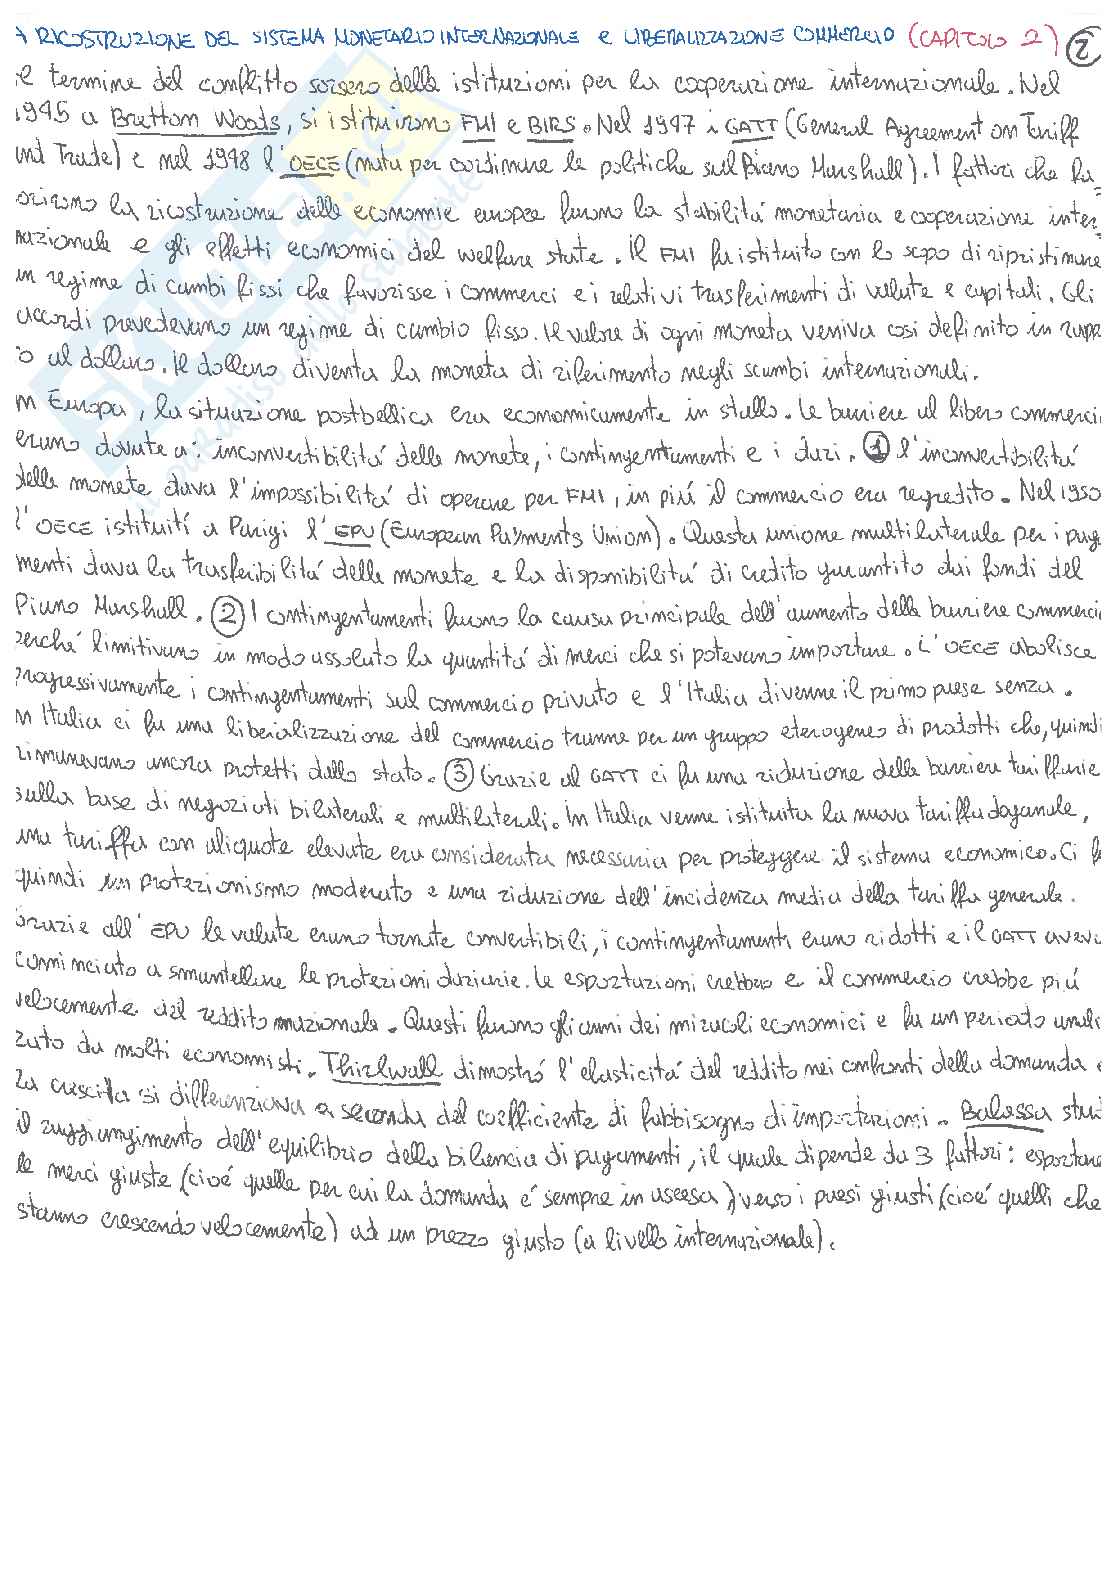 A RICOSTRUZIONE DEL SISTEMA MONETARIO INTERNAZIONALE e LIBERALIZZAZIONE COMMERCIO (CAPITOLO 2) 2
il termine del conflitto sorsero delle istituzioni per la cooperazione internazionale. Nel
1945 a Bretton Woods, si istituirono FMI e BIRS. Nel 1947 i GATT (General Agreement on Tariff
and Trade) e nel 1948 l'OECE (nata per cordinare le politiche sul Piano Marshall). I fattori che fa-
orirono la ricostruzione delle economie europee furono la stabilitá monetaria e cooperazione inter-
nazionale e gli effetti economici del welfare state. Il FMI fu istituito con lo scopo di ripristinare
un regime di cambi fissi che favorisse i commerci e i relativi trasferimenti di valute e capitali. Gli
accordi prevedevano un regime di cambio fisso. Il valore di ogni moneta veniva cosi definito in rapp
o al dollaro. Il dollaro diventa la moneta di riferimento negli scambi internazionali.
In Europa, la situazione postbellica era economicamente in stallo. Le barriere al libero commerci
erano dovute a: inconvertibilitá delle monete, i contingentamenti e i dazi. 1 l'inconvertibilitá
delle monete dava l'impossibilitá di operare per FMI, in piú il commercio era regredito. Nel 1950
l'OECE istituití a Parigi l'EPU (European Payments Union). Questa unione multilaterale per i pag
menti dava la trasferibilitá delle monete e la disponibilitá di credito garantito dai fondi del
Piano Marshall. 2 I contingentamenti furono la causa principale dell'aumento delle barriere commerci
perché limitivano in modo assoluto la quantitá di merci che si potevano importare. L'OECE abolisce
progressivamente i contingentamenti sul commercio privato e l'Italia divenne il primo paese senza.
In Italia ci fu una liberializzazione del commercio tranne per un gruppo eterogeneo di prodotti che, quindi
rimanevano ancora protetti dallo stato. 3 Grazie al GATT ci fu una riduzione delle barriere tariffarie
sulla base di negoziati bilaterali e multilaterali. In Italia venne istituita la nuova tariffa doganale,
una tariffa con aliquote elevate era considerata necessaria per proteggere il sistema economico. Ci f
quindi un protezionismo moderato e una riduzione dell'incidenza media della tariffa generale.
Grazie all'EPU le valute erano tornate convertibili, i contingentamenti erano ridotti e il GATT aveva
comninciato a smantellare le protezioni daziarie. Le esportazioni crebbero e il commercio crebbe piú
velocemente del reddito nazionale. Questi furono gli anni dei miracoli economici e fu un periodo anali
zato da molti economisti. Thirlwall dimostró l'elasticitá del reddito nei confronti della domanda e
la crescita si differenziava a seconda del coefficiente di fabbisogno di importazioni. Balassa stud
il raggiungimento dell'equilibrio della bilancia di pagamenti, il quale dipende da 3 fattori: esportare
le merci giuste (cioé quelle per cui la domanda é sempre in ascesa) verso i paesi giusti (cioé quelli che
stanno crescendo velocemente) ad un prezzo giusto (a livello internazionale).